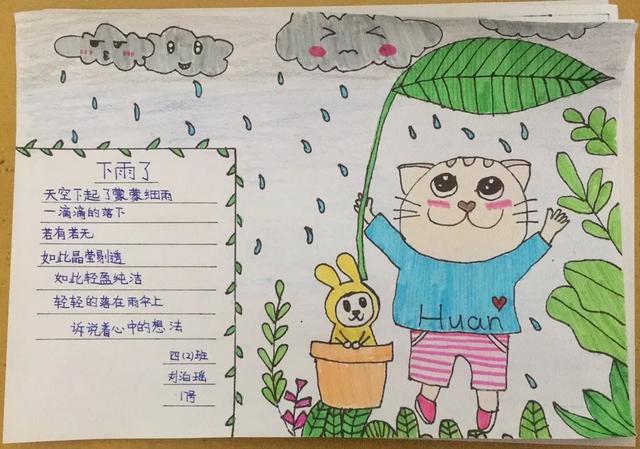 下雨了
天空下起了蒙蒙细雨
一滴滴的落下
若有若无
如此晶莹剔透
如此轻盈纯洁
轻轻的落在雨伞上
诉说着心中的想法
四(2)班
刘泊瑶
1号
Huan